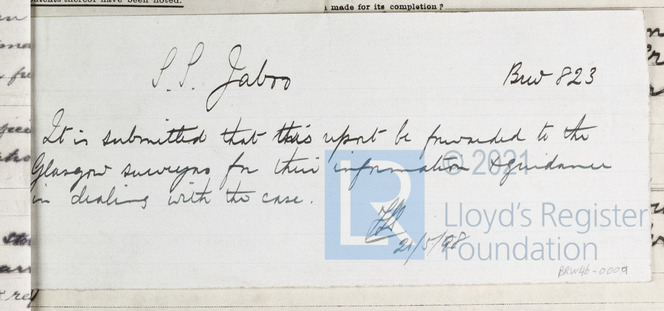 thereof have been noted.
made for its completion?
S.S. Jaboo
Brw 823
It is submitted that this report be forwarded to the
Glasgow surveyors for their information & guidance
in dealing with the case.
21/5/98
© 2021
Lloyd's Register
Foundation
LR
BRW46-0009